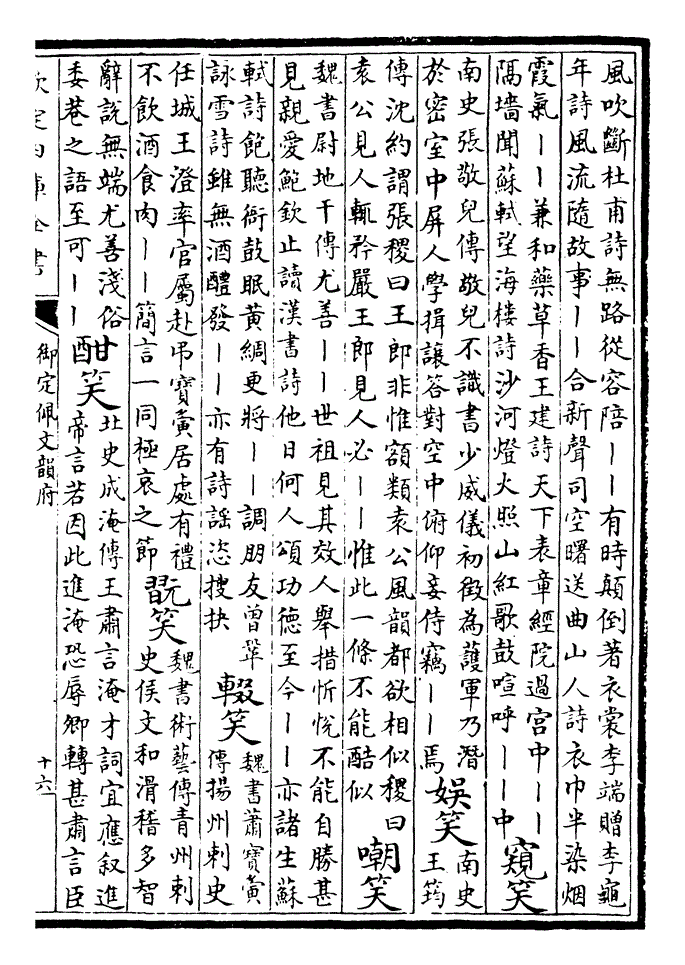 風吹斷杜甫詩無路從容陪丨丨有時顛倒著衣裳李端贈李龜
年詩風流隨故事丨丨合新聲司空曙送曲山人詩衣巾半染烟
霞氣丨丨兼和藥草香王建詩天下表章經院過宮中丨丨
隔墻聞蘇軾望海樓詩沙河燈火照山紅歌鼓喧呼丨丨中
窺笑
南史張敬兒傳敬兒不識書少威儀初徵為護軍乃潛
於密室中屏人學揖讓答對空中俯仰妾侍竊丨丨焉
娛笑
南史
王筠
傳沈約謂張稷曰王郎非惟額類袁公風韻都欲相似稷曰
袁公見人輒矜嚴王郎見人必丨丨惟此一條不能酷似
嘲笑
魏書尉地干傳尤善丨丨世祖見其效人舉措忻悅不能自勝甚
見親愛鮑欽止讀漢書詩他日何人頌功德至今丨丨亦諸生蘇
軾詩飽聽衙鼓眠黃綢更將丨丨調朋友曾鞏
詠雪詩雖無酒醴發丨丨亦有詩謠恣搜抉
輟笑
魏書蕭寶夤
傳揚州刺史
任城王澄率官屬赴弔寶夤居處有禮
不飲酒食肉丨丨簡言一同極哀之節
翫笑
魏書術藝傳青州刺
史侯文和滑稽多智
辭說無端尤善淺俗
委巷之語至可丨丨
酣笑
北史成淹傳王肅言淹才詞宜應叙進
帝言若因此進淹恐辱卿轉甚肅言臣
欽定四庫全書
御定佩文韻府
十六